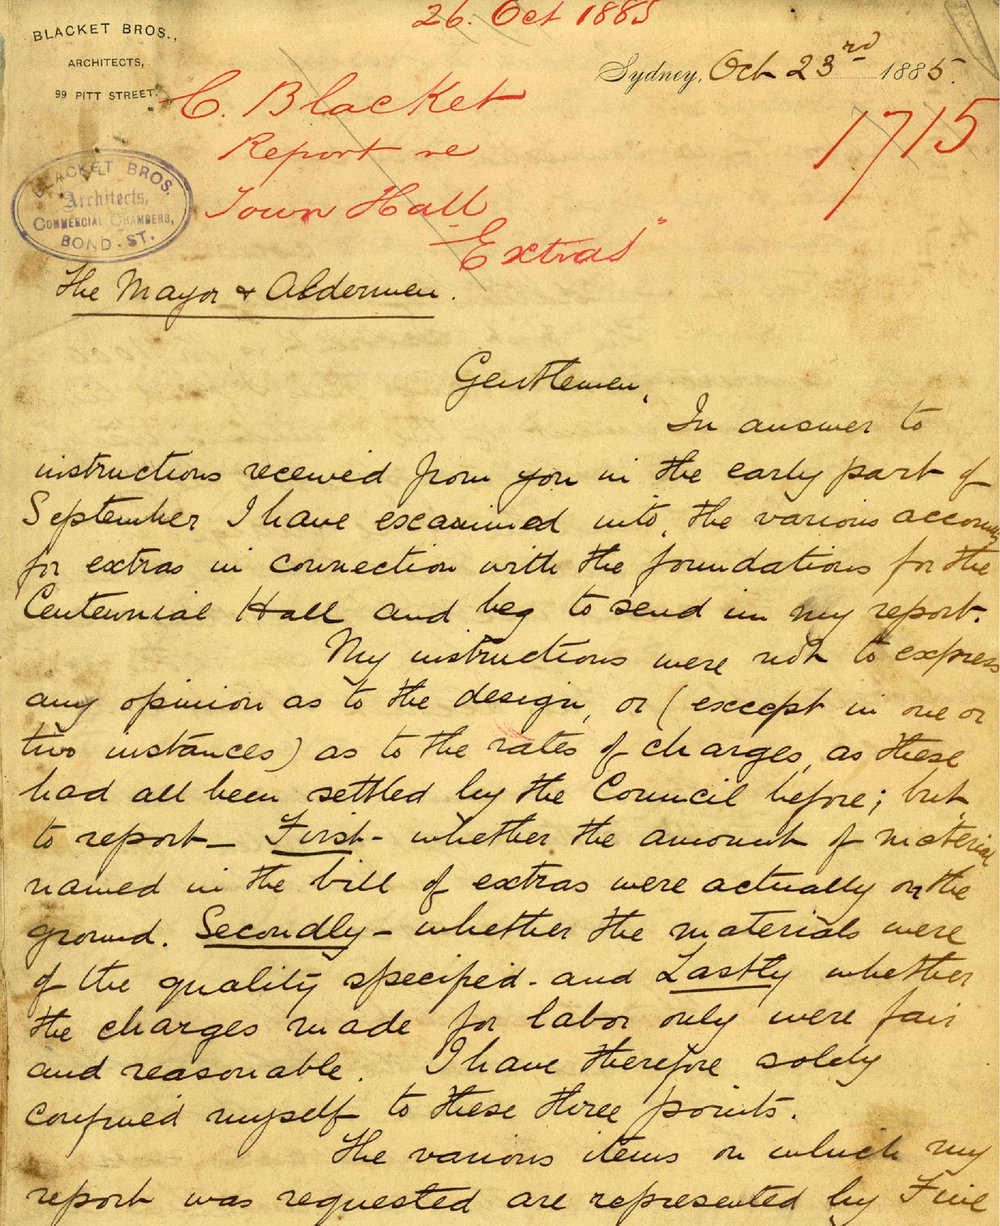 26. Oct 1885
BLACKET BROS.,
ARCHITECTS,
99 PITT STREET.
Sydney, Oct 23rd 1885.
C. Blacket
Report re
Town Hall
"Extras"
1715
BLACKET BROS.
Architects,
COMMERCIAL CHAMBERS,
BOND-ST.
The Mayor & Aldermen.
Gentlemen,
In answer to
instructions received from you in the early part of
September I have examined into, the various accounts
for extras in connection with the foundations for the
Centennial Hall and beg to send in my report.
My instructions were not to express
any opinion as to the design, or (except in one or
two instances) as to the rates of charges, as these
had all been settled by the Council before; but
to report - First - whether the amount of material
named in the bill of extras were actually on the
ground. Secondly - whether the materials were
of the quality specified - and Lastly whether
the charges made for labor only were fair
and reasonable. I have therefore solely
confined myself to these three points.
The various items on which my
report was requested are represented by Five